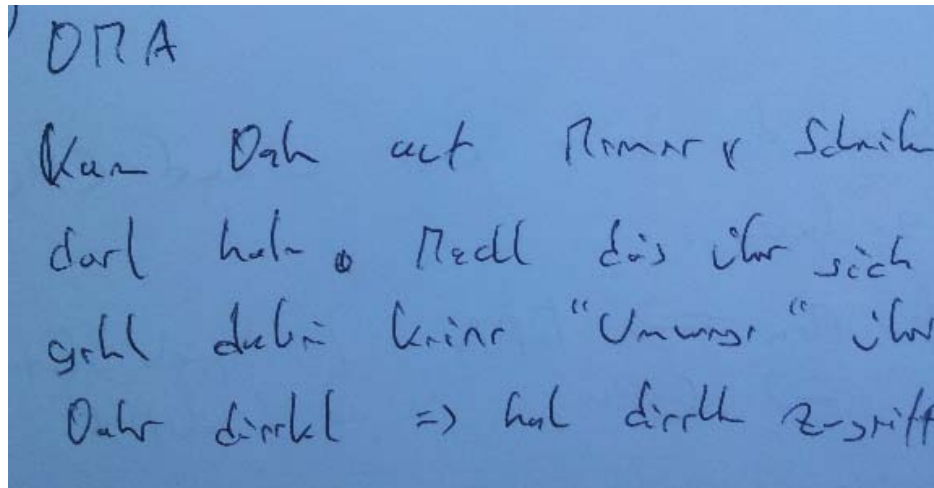 DMA
Kann Daten auf Memory Schreiben
dort holen. Macht das über sich
geht dabei keine "Umwege" über
Daher direkt => hat direkten Zugriff